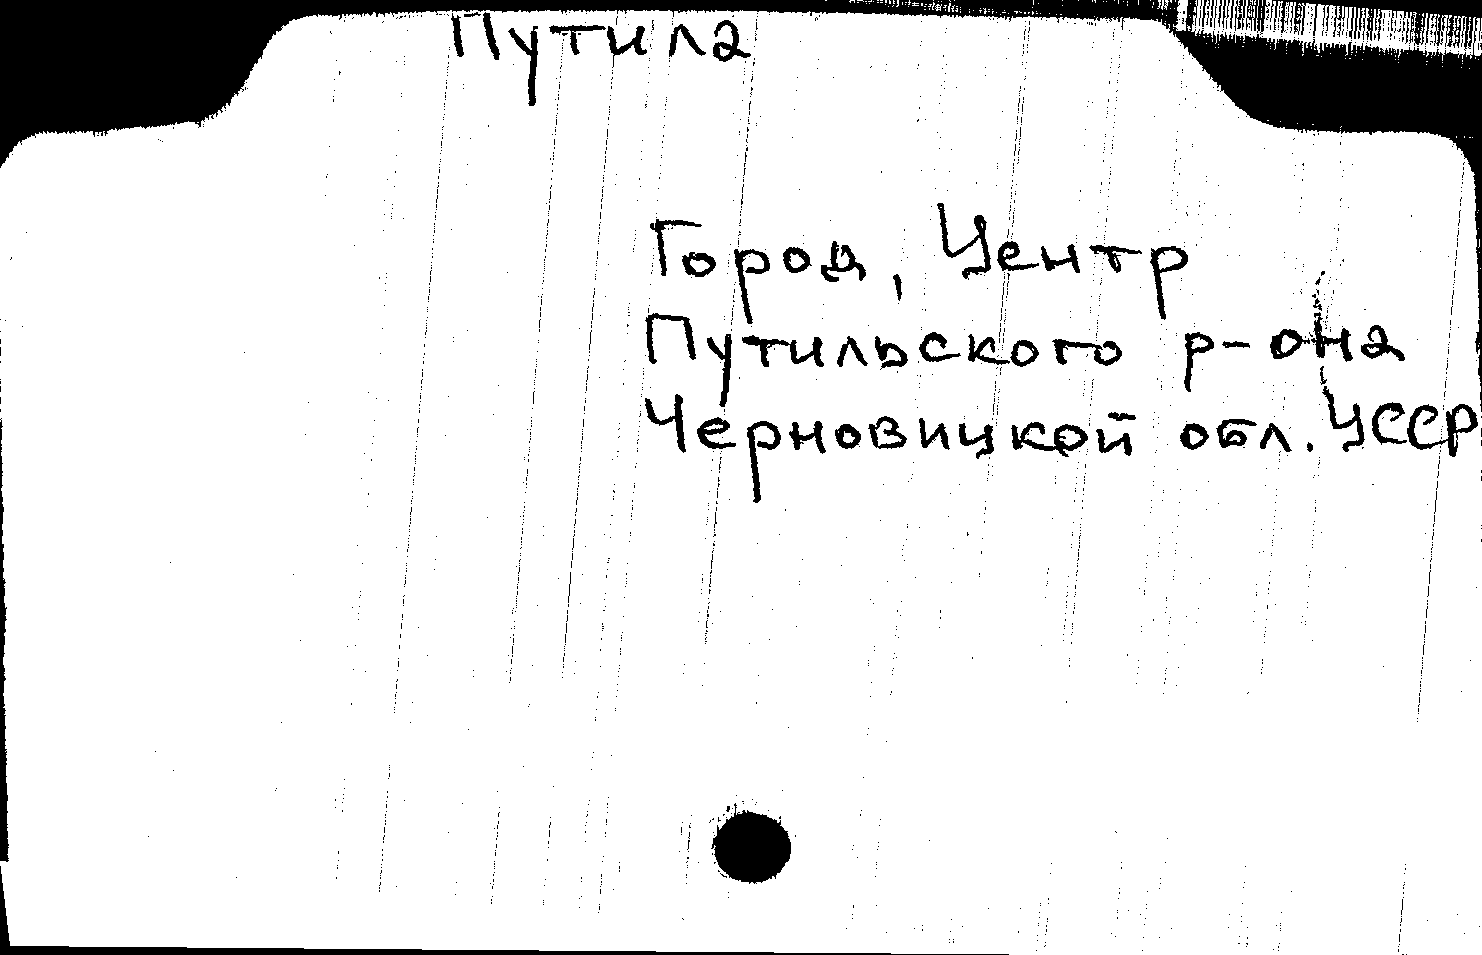 Путила
Город, Центр
Путильского р-она
Черновицкой обл. УССР